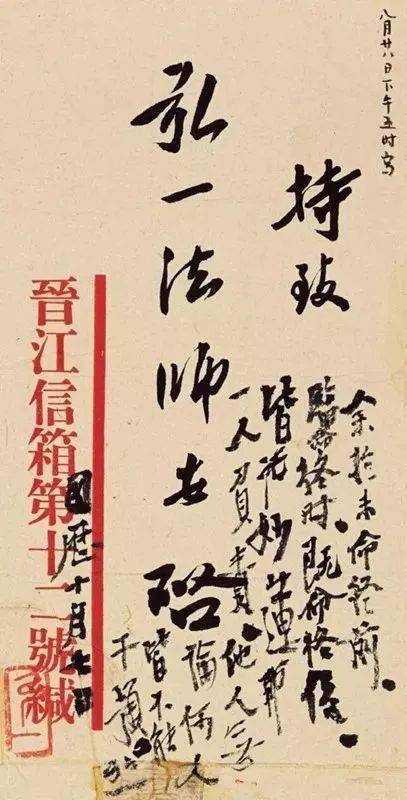 八月廿八日下午五时写
持致
余於未命終前。
臨命終時。既命終後。
皆托妙蓮師
一人負責。他人無
論何人
皆不能
干預
弘一法師安啓
国歷十月七日
晉江信箱第十二號緘
弘一